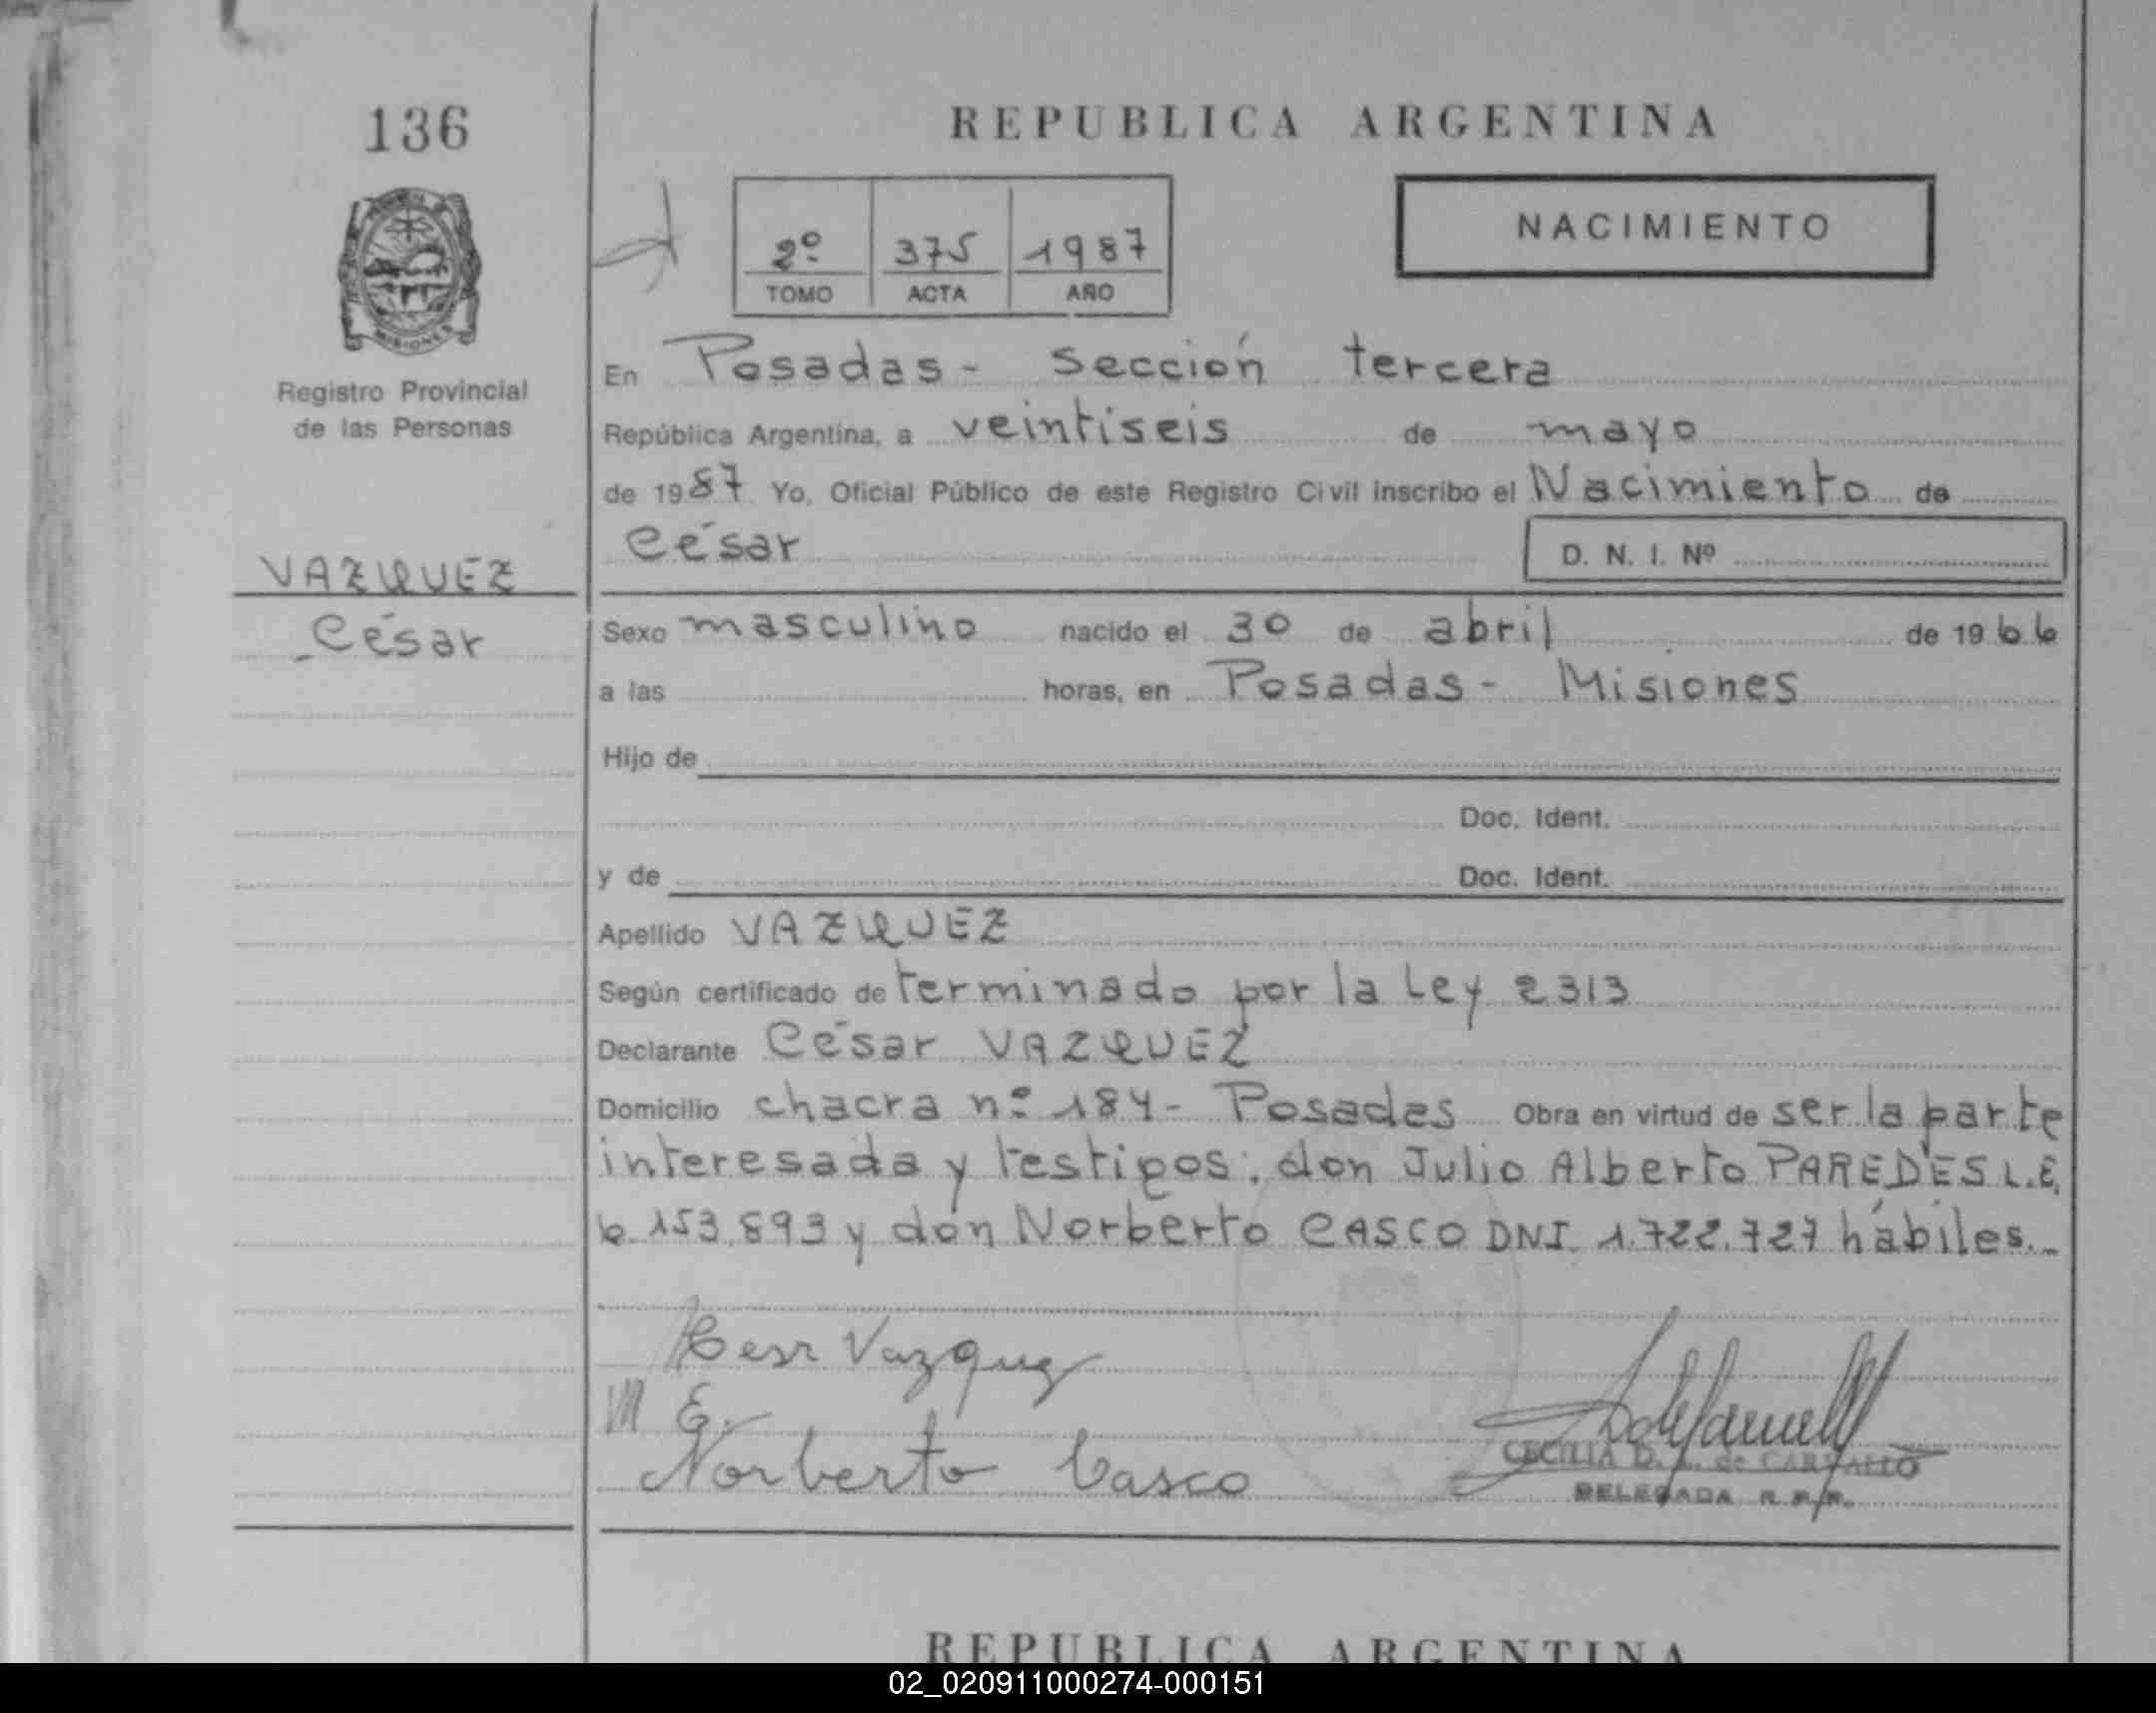 136
REPUBLICA ARGENTINA
NACIMIENTO
2º 375 1987
TOMO ACTA AÑO
MISIONES
Registro Provincial
de las Personas
En Posadas - Sección tercera
República Argentina, a veintiseis de mayo
de 1987 Yo, Oficial Público de este Registro Civil inscribo el Nacimiento de
César D. N. I. Nº
VAZQUEZ
César
Sexo masculino nacido el 30 de abril de 1966
a las horas, en Posadas - Misiones
Hijo de
Doc. Ident.
y de Doc. Ident.
Apellido VAZQUEZ
Según certificado de terminado por la Ley 2313
Declarante César VAZQUEZ
Domicilio chacra nº 184 - Posadas Obra en virtud de ser la parte
interesada y testigos: don Julio Alberto PAREDES L.E.
6.153.893 y don Norberto CASCO DNI. 1.722.727 hábiles.-
Cesr Vazquez
Norberto Casco
CECILIA D. de CARVALLO
DELEGADA R.P.P.
REPUBLICA ARGENTINA
02_020911000274-000151